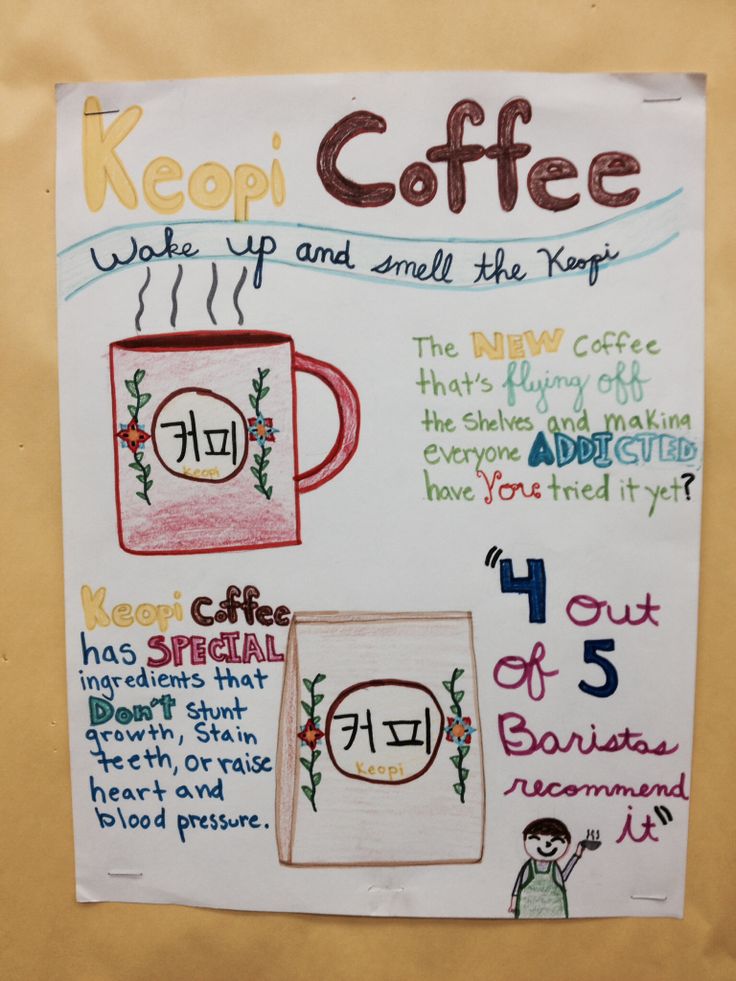 Keopi Coffee
Wake up and smell the Keopi
커피
Keopi
The NEW Coffee
that's flying off
the shelves and making
everyone ADDICTED
have You tried it yet?
Keopi Coffee
has SPECIAL
ingredients that
Don't stunt
growth, Stain
teeth, or raise
heart and
blood pressure.
커피
Keopi
"4 out
of 5
Baristas
recommend
it"